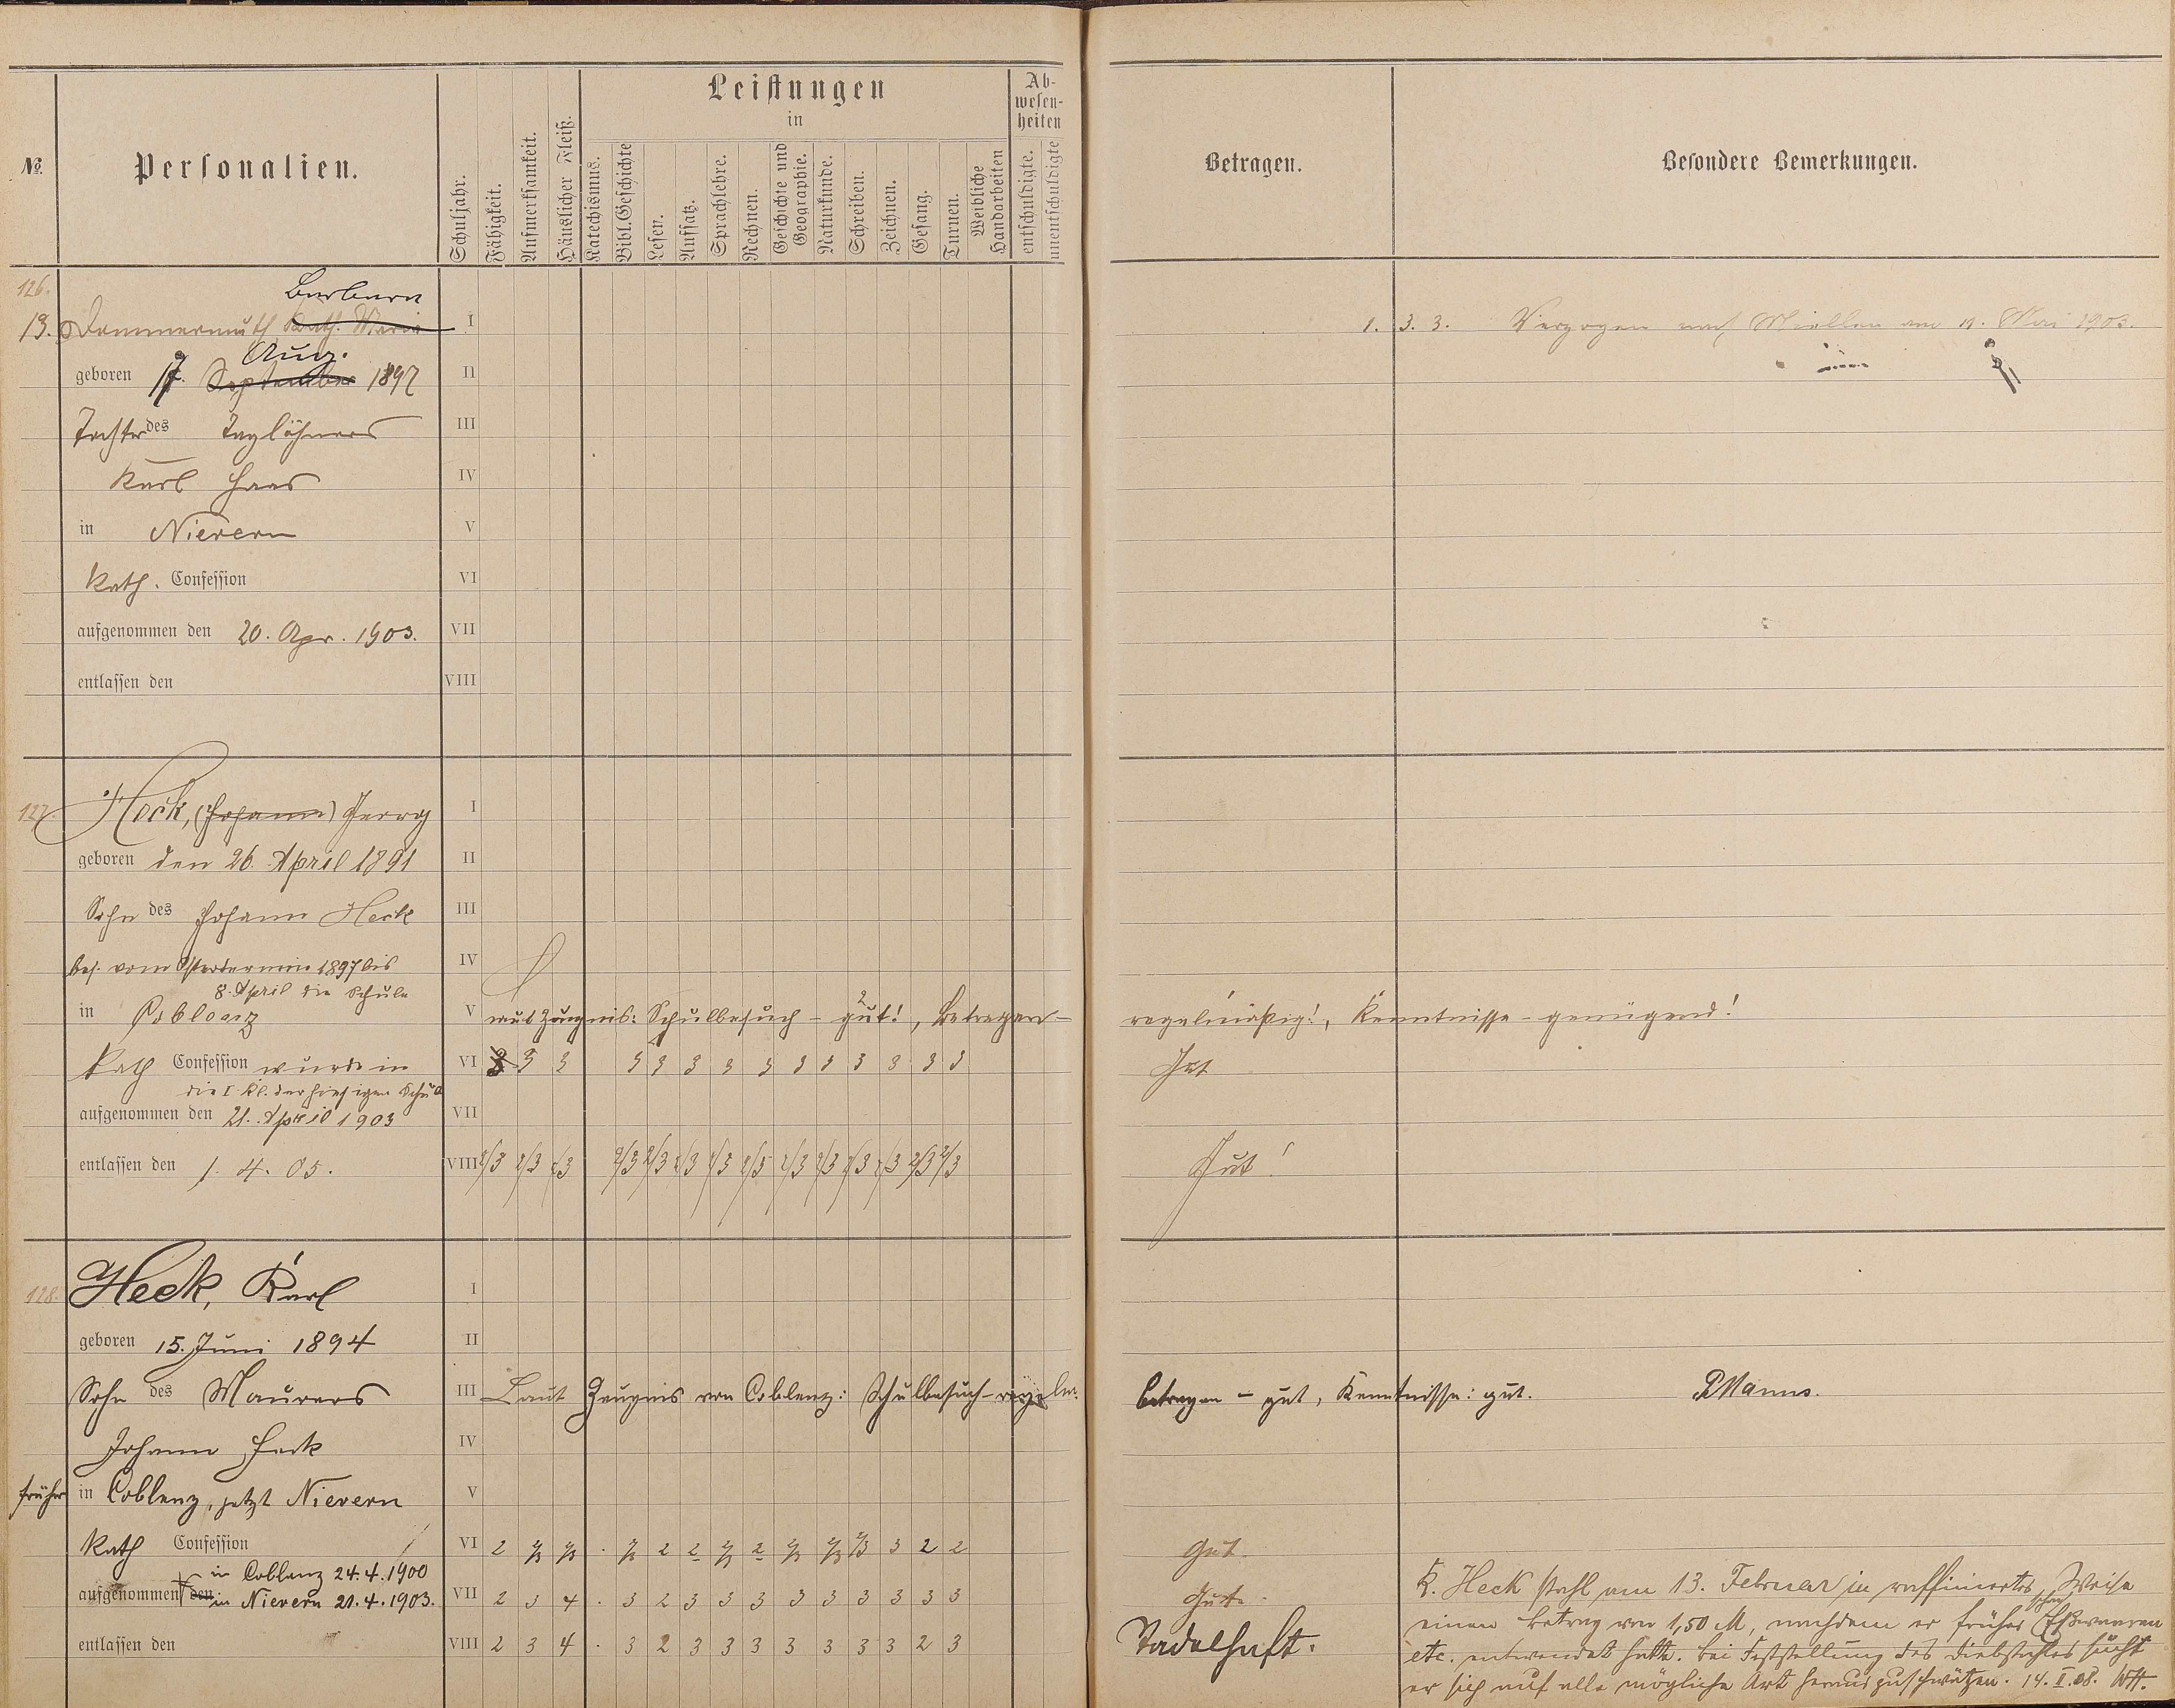 №
Personalien.
Schuljahr.
Fähigkeit.
Aufmerksamkeit.
Häuslicher Fleiß.
Leistungen
in
Katechismus.
Bibl. Geschichte
Lesen.
Aufsatz.
Sprachlehre.
Rechnen.
Geschichte und Geographie.
Naturkunde.
Schreiben.
Zeichnen.
Gesang.
Turnen.
Weibliche Handarbeiten
Ab-
wesen-
heiten
entschuldigte.
unentschuldigte
Betragen.
Besondere Bemerkungen.
126.
Barbara
13. Dommermuth Kath. Maria I 1. 3. 3. Verzogen nach Miellen am 11. Mai 1903.
Aug.
geboren 17. September 1897 II
Tochter des Taglöhners III
Karl Haas IV
in Nievern V
Kath. Confession VI
aufgenommen den 20. Apr. 1903. VII
entlassen den VIII
127. Heck, (Johann) Georg I
geboren den 26. April 1891 II
Sohn des Johann Heck III
bes. vom Ostertermin 1897 bis IV
8. April die Schule
in Coblenz V laut Zeugnis: Schulbesuch - gut!, Betragen - regelmäßig!, Kenntnisse - genügend!
Kath Confession wurde in VI 3 3 3 3 3 3 3 3 3 3 3 3 3 3 Gut
die I. Kl. der hiesigen Schule
aufgenommen den 21. April 1903 VII
entlassen den 1. 4. 05. VIII 2/3 2/3 2/3 2/3 2/3 2/3 2/3 2/3 2/3 2/3 2/3 2/3 2/3 2/3 Gut!
128. Heck, Karl I
geboren 15. Juni 1894 II
Sohn des Maurers III Laut Zeugnis von Coblenz: Schulbesuch - regelm. Betragen - gut, Kenntnisse: gut. Manns.
Johann Heck IV
früher in Coblenz, jetzt Nievern V
Kath Confession VI 2 2/3 2/3 . 2/3 2 2 2/3 2 2/3 2/3 2/3 3 2 2 Gut.
in Coblenz 24.4.1900
aufgenommen den in Nievern 21.4.1903. VII 2 3 4 . 3 2 3 3 3 3 3 3 3 3 3 Gut.
entlassen den VIII 2 3 4 . 3 2 3 3 3 3 3 3 3 2 3 Tadelhaft.
K. Heck stahl am 13. Februar in raffinierter Weise
einen Betrag von 1,50 M, nachdem er früher schon Eßwaaren
etc. entwendet hatte. Bei Feststellung des Diebstahles sucht
er sich auf alle mögliche Art herauszuschwätzen. 14. II. 08.